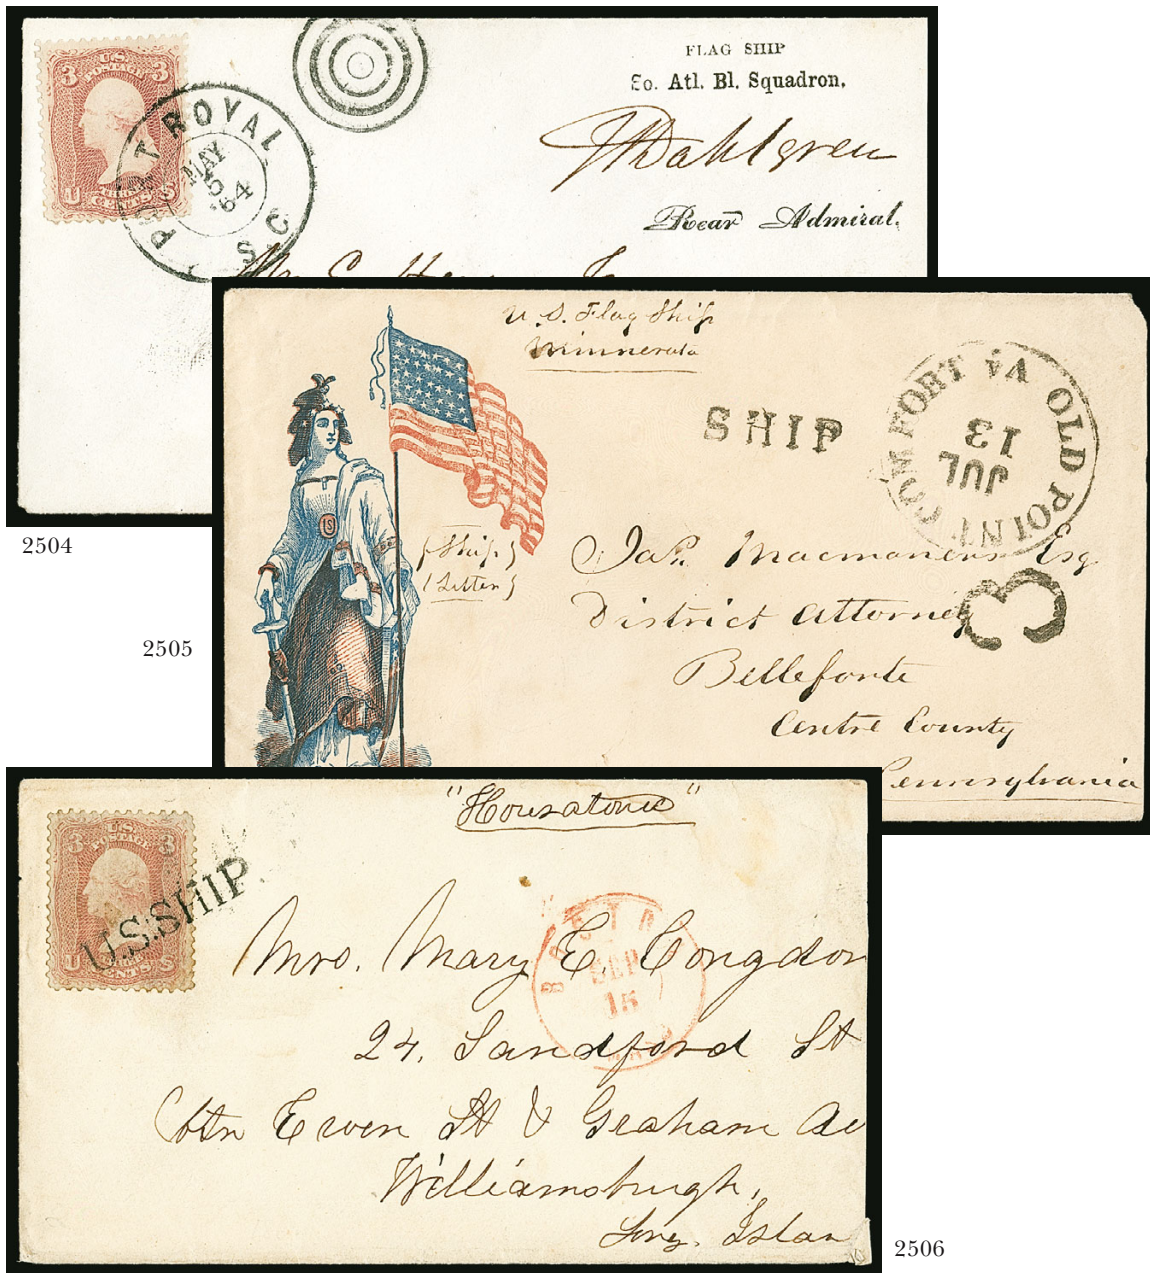 U.S.
POSTAGE
3 3
U THREE S
CENTS
PORT ROYAL
S.C.
MAY
5
'64
FLAG SHIP
So. Atl. Bl. Squadron,
JADahlgren
Rear Admiral.
2504
U.S. Flag Ship
Minnesota
SHIP
OLD POINT COMFORT VA
JUL
13
IS
(Ship)
(Letter)
Jas. Macmanus Esq
District Attorney
3
Bellefonte
Centre County
Pennsylvania
2505
"Housatonic"
U.S.
POSTAGE
3 3
U S
CENTS
U.S.SHIP
BOSTON
SEP
15
MASS
Mrs. Mary E. Congdon
24, Sandford St
btn Ewen St & Graham Av
Williamsburgh,
Long Islan
2506